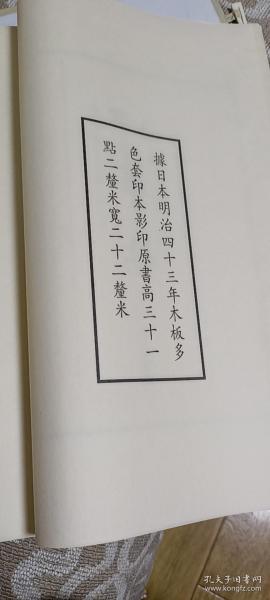 據日本明治四十三年木板多
色套印本影印原書高三十一
點二釐米寬二十二釐米
孔夫子旧书网
www.kongfz.com